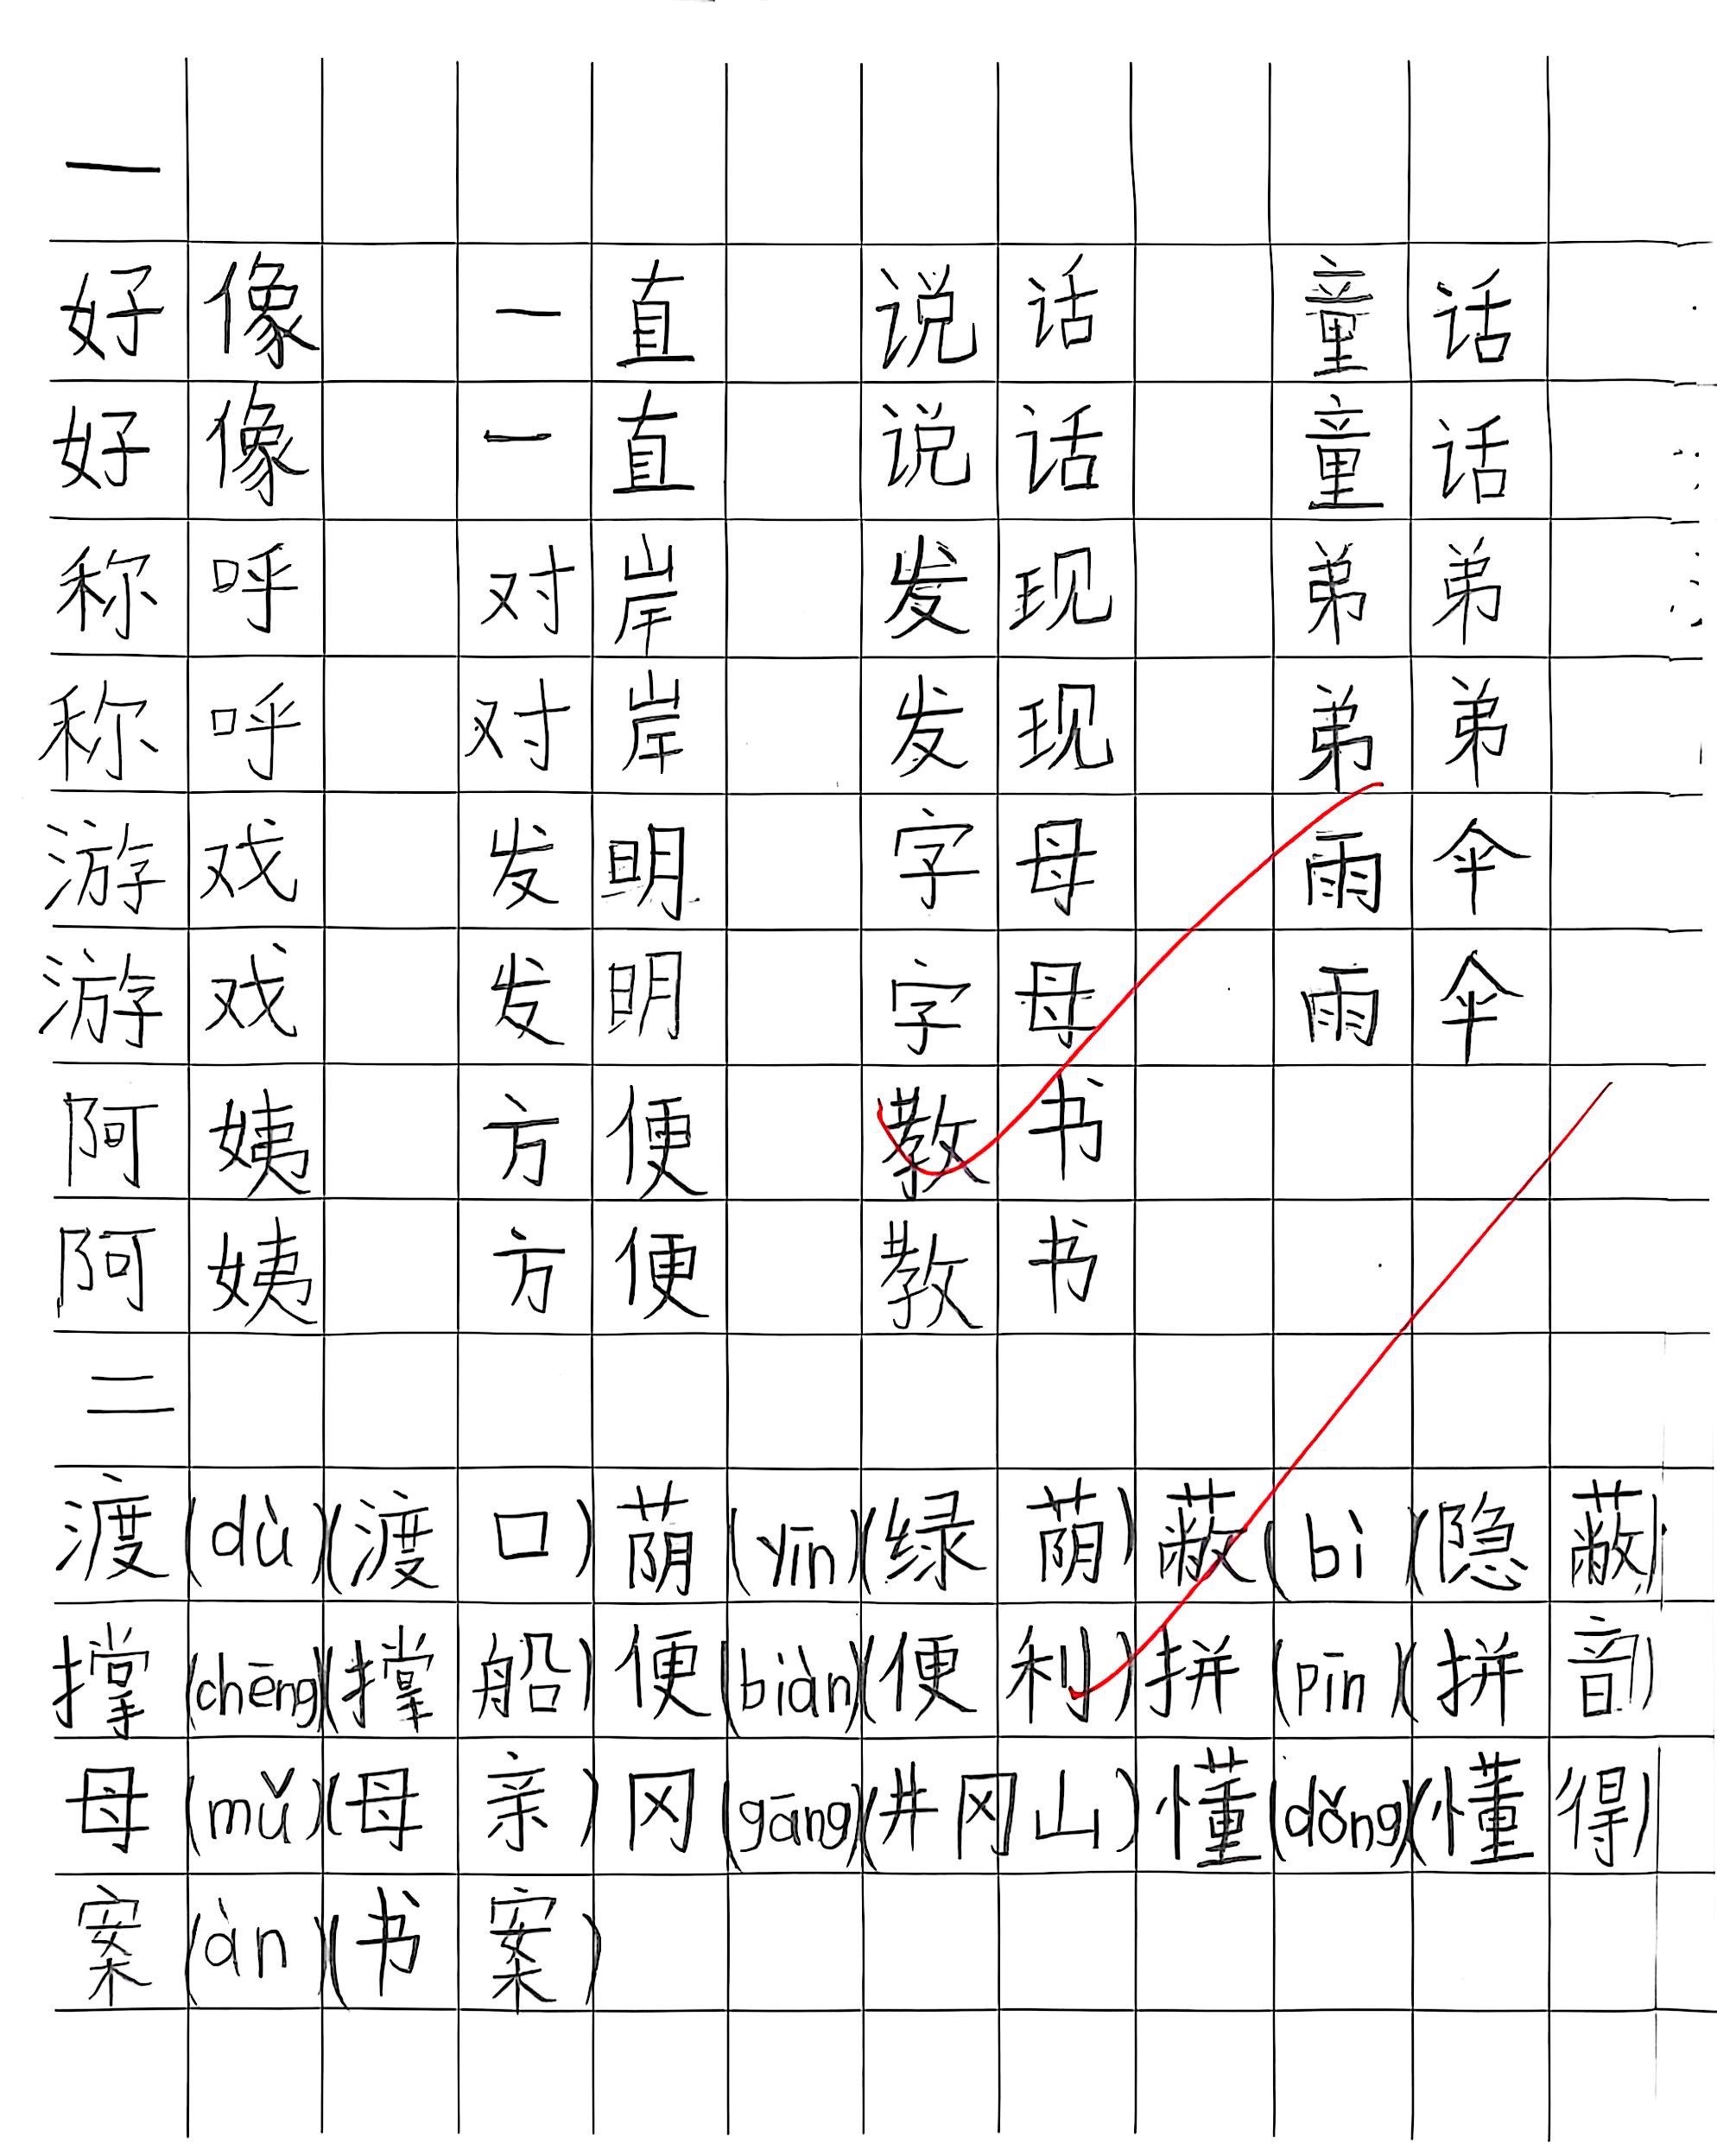 一
好像 一直 说话 童话
好像 一直 说话 童话
称呼 对岸 发现 弟弟
称呼 对岸 发现 弟弟
游戏 发明 字母 雨伞
游戏 发明 字母 雨伞
阿姨 方便 教书
阿姨 方便 教书
二
渡(dù)(渡口)荫(yīn)(绿荫)蔽(bì)(隐蔽)
撑(chēng)(撑船)便(biàn)(便利)拼(pīn)(拼音)
母(mǔ)(母亲)冈(gāng)(井冈山)懂(dǒng)(懂得)
案(àn)(书案)